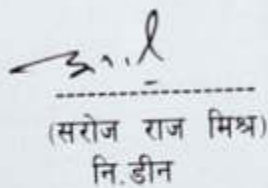 (सरोज राज मिश्र)
नि.डीन